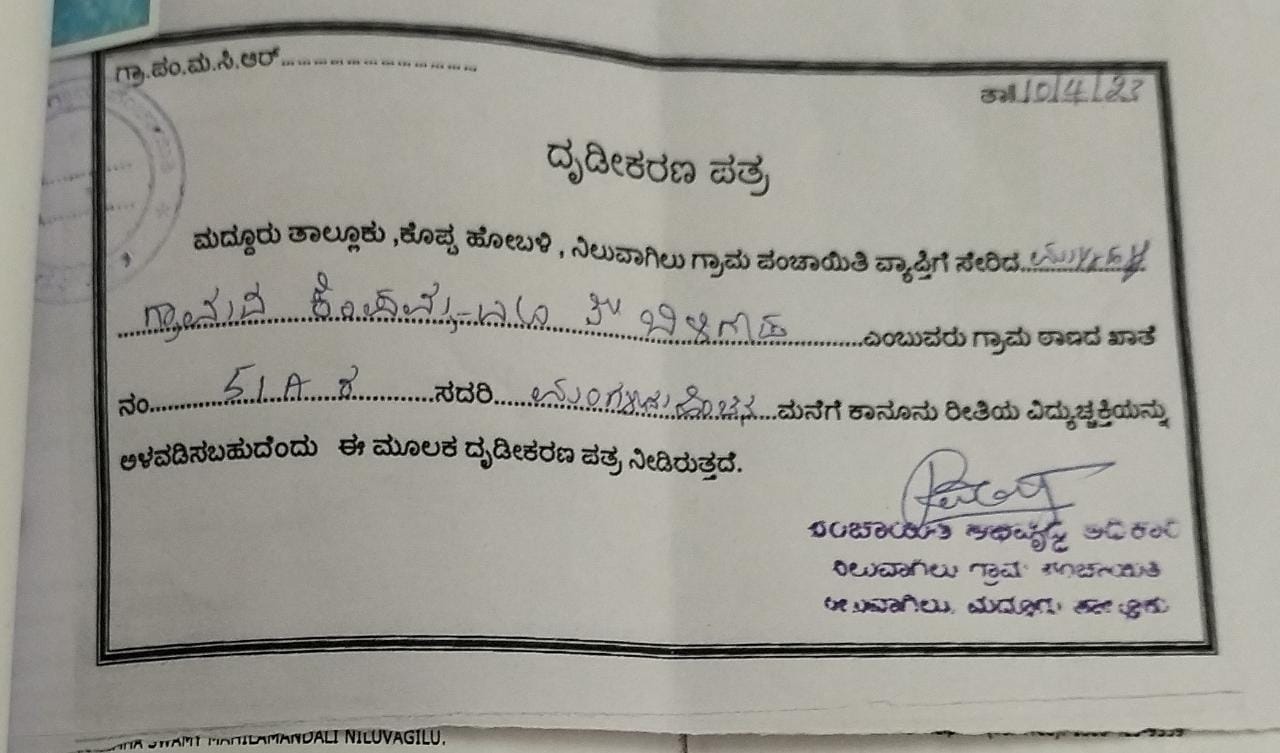 ಗ್ರಾ.ಪಂ.ಮ.ಸಿ.ಆರ್..............................
ತಾ||10/4/23
ದೃಡೀಕರಣ ಪತ್ರ
ಮದ್ದೂರು ತಾಲ್ಲೂಕು ,ಕೊಪ್ಪ ಹೋಬಳಿ , ನಿಲುವಾಗಿಲು ಗ್ರಾಮ ಪಂಚಾಯಿತಿ ವ್ಯಾಪ್ತಿಗೆ ಸೇರಿದ
ಗ್ರಾಮದ ಎಂಬುವರು ಗ್ರಾಮ ಠಾಣದ ಖಾತೆ
ನಂ 51A ಸದರಿ ಮನೆಗೆ ಕಾನೂನು ರೀತಿಯ ವಿದ್ಯುಚ್ಛಕ್ತಿಯನ್ನು
ಅಳವಡಿಸಬಹುದೆಂದು ಈ ಮೂಲಕ ದೃಡೀಕರಣ ಪತ್ರ ನೀಡಿರುತ್ತದೆ.
ಪಂಚಾಯಿತಿ ಅಭಿವೃದ್ಧಿ ಅಧಿಕಾರಿ
ನಿಲುವಾಗಿಲು ಗ್ರಾಮ ಪಂಚಾಯಿತಿ
ನಿಲುವಾಗಿಲು, ಮದ್ದೂರು ತಾಲ್ಲೂಕು
SWAMY MAHILAMANDALI NILUVAGILU,